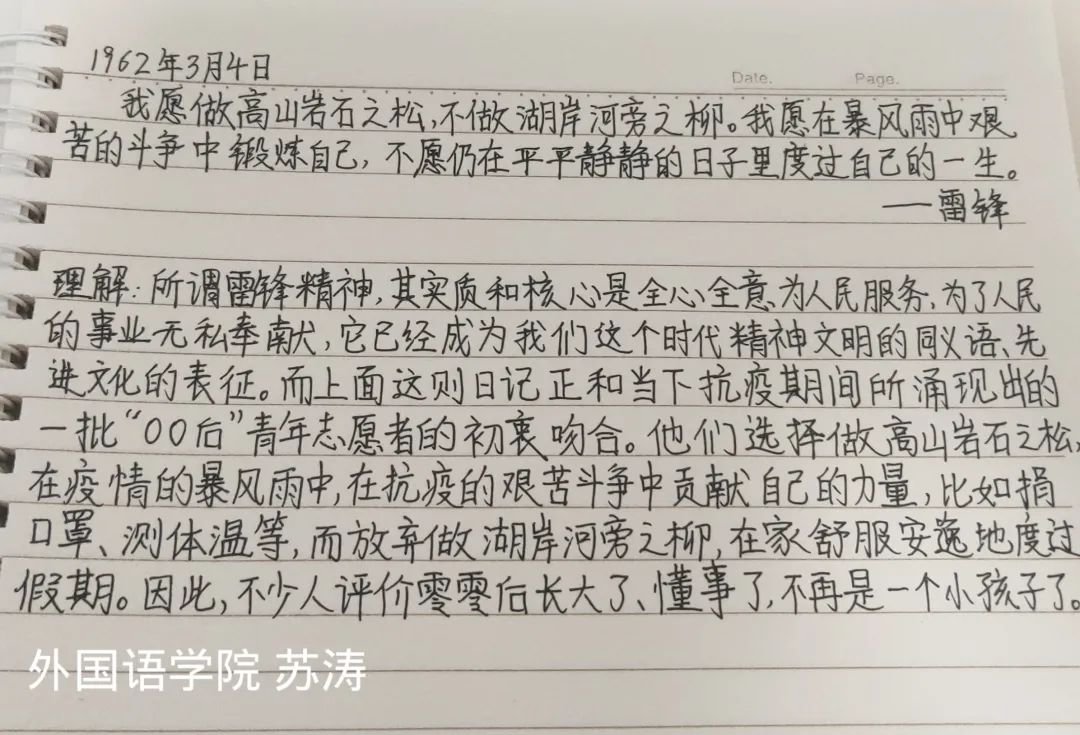 1962年3月4日
Date. Page.
我愿做高山岩石之松,不做湖岸河旁之柳。我愿在暴风雨中艰
苦的斗争中锻炼自己,不愿仍在平平静静的日子里度过自己的一生。
——雷锋
理解:所谓雷锋精神,其实质和核心是全心全意为人民服务、为了人民
的事业无私奉献,它已经成为我们这个时代精神文明的同义语、先
进文化的表征。而上面这则日记正和当下抗疫期间所涌现出的
一批“00后”青年志愿者的初衷吻合。他们选择做高山岩石之松,
在疫情的暴风雨中,在抗疫的艰苦斗争中贡献自己的力量,比如捐
口罩、测体温等,而放弃做湖岸河旁之柳,在家舒服安逸地度过
假期。因此,不少人评价零零后长大了、懂事了,不再是一个小孩子了。
外国语学院 苏涛